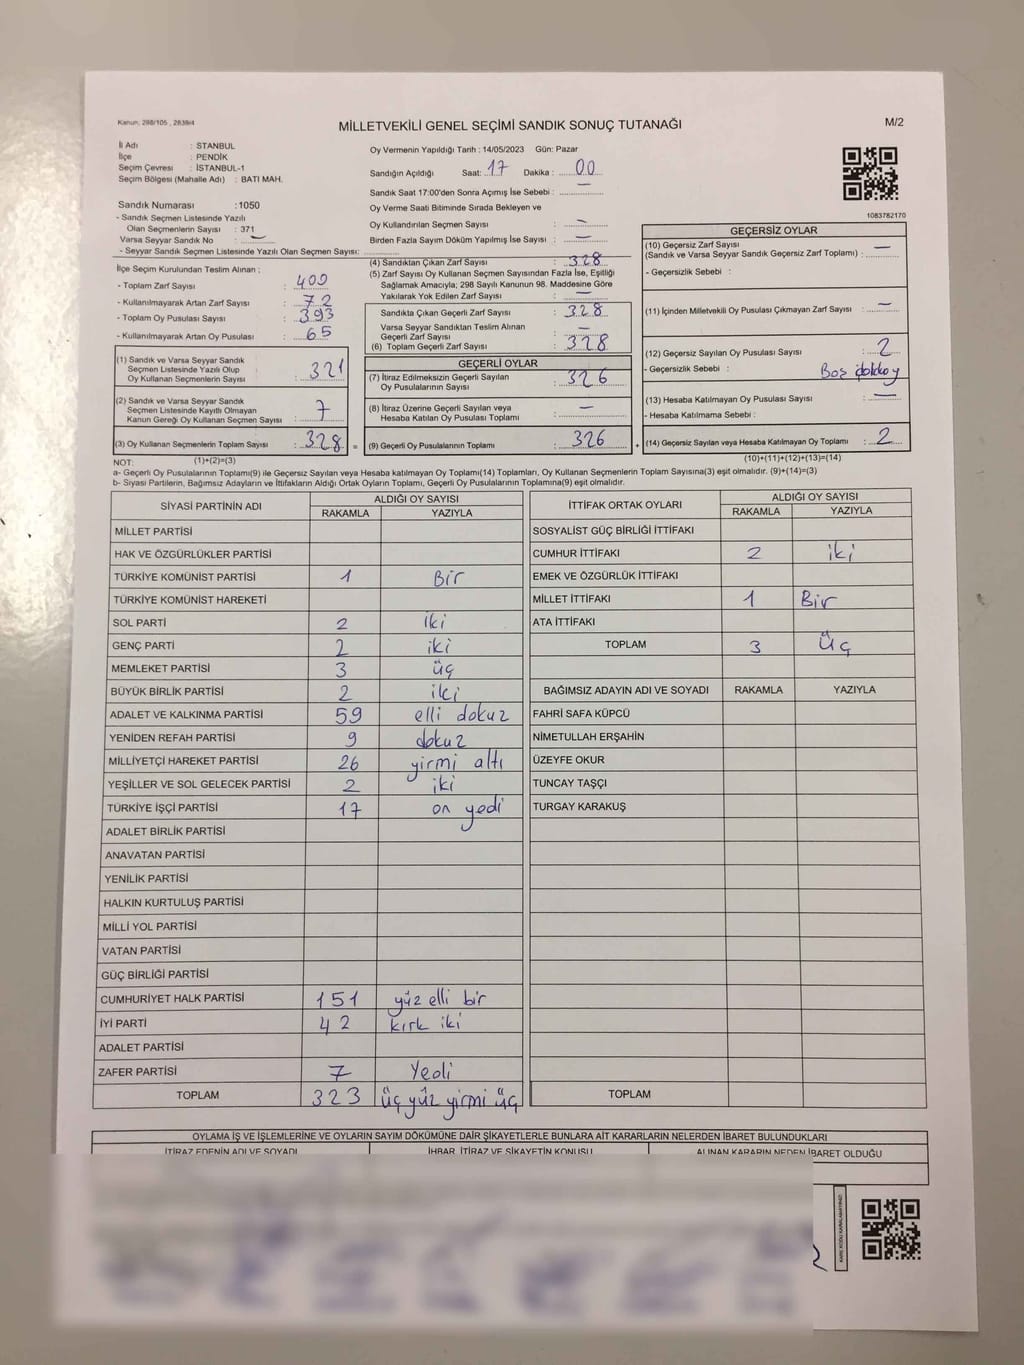 Kanun: 298/105 , 2839/4
MİLLETVEKİLİ GENEL SEÇİMİ SANDIK SONUÇ TUTANAĞI
M/2
İl Adı : STANBUL
İlçe : PENDİK
Seçim Çevresi : İSTANBUL-1
Seçim Bölgesi (Mahalle Adı) : BATI MAH.
Sandık Numarası :1050
- Sandık Seçmen Listesinde Yazılı
Olan Seçmenlerin Sayısı : 371
Varsa Seyyar Sandık No : —
- Seyyar Sandık Seçmen Listesinde Yazılı Olan Seçmen Sayısı:
İlçe Seçim Kurulundan Teslim Alınan ;
- Toplam Zarf Sayısı : 400
- Kullanılmayarak Artan Zarf Sayısı : 72
- Toplam Oy Pusulası Sayısı : 393
- Kullanılmayarak Artan Oy Pusulası : 65
(1) Sandık ve Varsa Seyyar Sandık
Seçmen Listesinde Yazılı Olup
Oy Kullanan Seçmenlerin Sayısı : 321
(2) Sandık ve Varsa Seyyar Sandık
Seçmen Listesinde Kayıtlı Olmayan
Kanun Gereği Oy Kullanan Seçmen Sayısı : 7
(3) Oy Kullanan Seçmenlerin Toplam Sayısı : 328 =
(1)+(2)=(3)
Oy Vermenin Yapıldığı Tarih : 14/05/2023 Gün: Pazar
Sandığın Açıldığı Saat: 17 Dakika : 00
Sandık Saat 17:00'den Sonra Açımış İse Sebebi : —
Oy Verme Saati Bitiminde Sırada Bekleyen ve
Oy Kullandırılan Seçmen Sayısı : —
Birden Fazla Sayım Döküm Yapılmış İse Sayısı : —
(4) Sandıktan Çıkan Zarf Sayısı : 328
(5) Zarf Sayısı Oy Kullanan Seçmen Sayısından Fazla İse, Eşitliği
Sağlamak Amacıyla; 298 Sayılı Kanunun 98. Maddesine Göre
Yakılarak Yok Edilen Zarf Sayısı : —
Sandıkta Çıkan Geçerli Zarf Sayısı : 328
Varsa Seyyar Sandıktan Teslim Alınan
Geçerli Zarf Sayısı : —
(6) Toplam Geçerli Zarf Sayısı : 328
GEÇERLİ OYLAR
(7) İtiraz Edilmeksizin Geçerli Sayılan
Oy Pusulalarının Sayısı : 326
(8) İtiraz Üzerine Geçerli Sayılan veya
Hesaba Katılan Oy Pusulası Toplamı : —
(9) Geçerli Oy Pusulalarının Toplamı : 326 +
1083782170
GEÇERSİZ OYLAR
(10) Geçersiz Zarf Sayısı
(Sandık ve Varsa Seyyar Sandık Geçersiz Zarf Toplamı) : —
- Geçersizlik Sebebi :
(11) İçinden Milletvekili Oy Pusulası Çıkmayan Zarf Sayısı : —
(12) Geçersiz Sayılan Oy Pusulası Sayısı : 2
- Geçersizlik Sebebi : Boş
(13) Hesaba Katılmayan Oy Pusulası Sayısı : —
- Hesaba Katılmama Sebebi :
(14) Geçersiz Sayılan veya Hesaba Katılmayan Oy Toplamı : 2
(10)+(11)+(12)+(13)=(14)
NOT:
a- Geçerli Oy Pusulalarının Toplamı(9) ile Geçersiz Sayılan veya Hesaba katılmayan Oy Toplamı(14) Toplamları, Oy Kullanan Seçmenlerin Toplam Sayısına(3) eşit olmalıdır. (9)+(14)=(3)
b- Siyasi Partilerin, Bağımsız Adayların ve İttifakların Aldığı Ortak Oyların Toplamı, Geçerli Oy Pusulalarının Toplamına(9) eşit olmalıdır.
SİYASİ PARTİNİN ADI ALDIĞI OY SAYISI
RAKAMLA YAZIYLA
MİLLET PARTİSİ
HAK VE ÖZGÜRLÜKLER PARTİSİ
TÜRKİYE KOMÜNİST PARTİSİ 1 Bir
TÜRKİYE KOMÜNİST HAREKETİ
SOL PARTİ 2 iki
GENÇ PARTİ 2 iki
MEMLEKET PARTİSİ 3 üç
BÜYÜK BİRLİK PARTİSİ 2 iki
ADALET VE KALKINMA PARTİSİ 59 elli dokuz
YENİDEN REFAH PARTİSİ 9 dokuz
MİLLİYETÇİ HAREKET PARTİSİ 26 yirmi altı
YEŞİLLER VE SOL GELECEK PARTİSİ 2 iki
TÜRKİYE İŞÇİ PARTİSİ 17 on yedi
ADALET BİRLİK PARTİSİ
ANAVATAN PARTİSİ
YENİLİK PARTİSİ
HALKIN KURTULUŞ PARTİSİ
MİLLİ YOL PARTİSİ
VATAN PARTİSİ
GÜÇ BİRLİĞİ PARTİSİ
CUMHURİYET HALK PARTİSİ 151 yüz elli bir
İYİ PARTİ 42 kırk iki
ADALET PARTİSİ
ZAFER PARTİSİ 7 Yedi
TOPLAM 323 üç yüz yirmi üç
İTTİFAK ORTAK OYLARI ALDIĞI OY SAYISI
RAKAMLA YAZIYLA
SOSYALİST GÜÇ BİRLİĞİ İTTİFAKI
CUMHUR İTTİFAKI 2 iki
EMEK VE ÖZGÜRLÜK İTTİFAKI
MİLLET İTTİFAKI 1 Bir
ATA İTTİFAKI
TOPLAM 3 üç
BAĞIMSIZ ADAYIN ADI VE SOYADI RAKAMLA YAZIYLA
FAHRİ SAFA KÜPCÜ
NİMETULLAH ERŞAHİN
ÜZEYFE OKUR
TUNCAY TAŞÇI
TURGAY KARAKUŞ
TOPLAM
OYLAMA İŞ VE İŞLEMLERİNE VE OYLARIN SAYIM DÖKÜMÜNE DAİR ŞİKAYETLERLE BUNLARA AİT KARARLARIN NELERDEN İBARET BULUNDUKLARI
İTİRAZ EDENİN ADI VE SOYADI İHBAR, İTİRAZ VE ŞİKAYETİN KONUSU ALINAN KARARIN NEDEN İBARET OLDUĞU